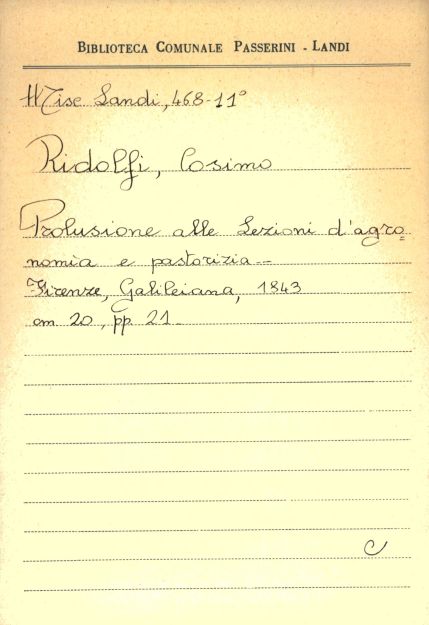 BIBLIOTECA COMUNALE PASSERINI - LANDI
Mise Landi, 468-11°
Ridolfi, Cosimo
Prolusione alle Lezioni d'agro=
nomia e pastorizia --
Firenze, Galileiana, 1843
cm 20, pp. 21-
C